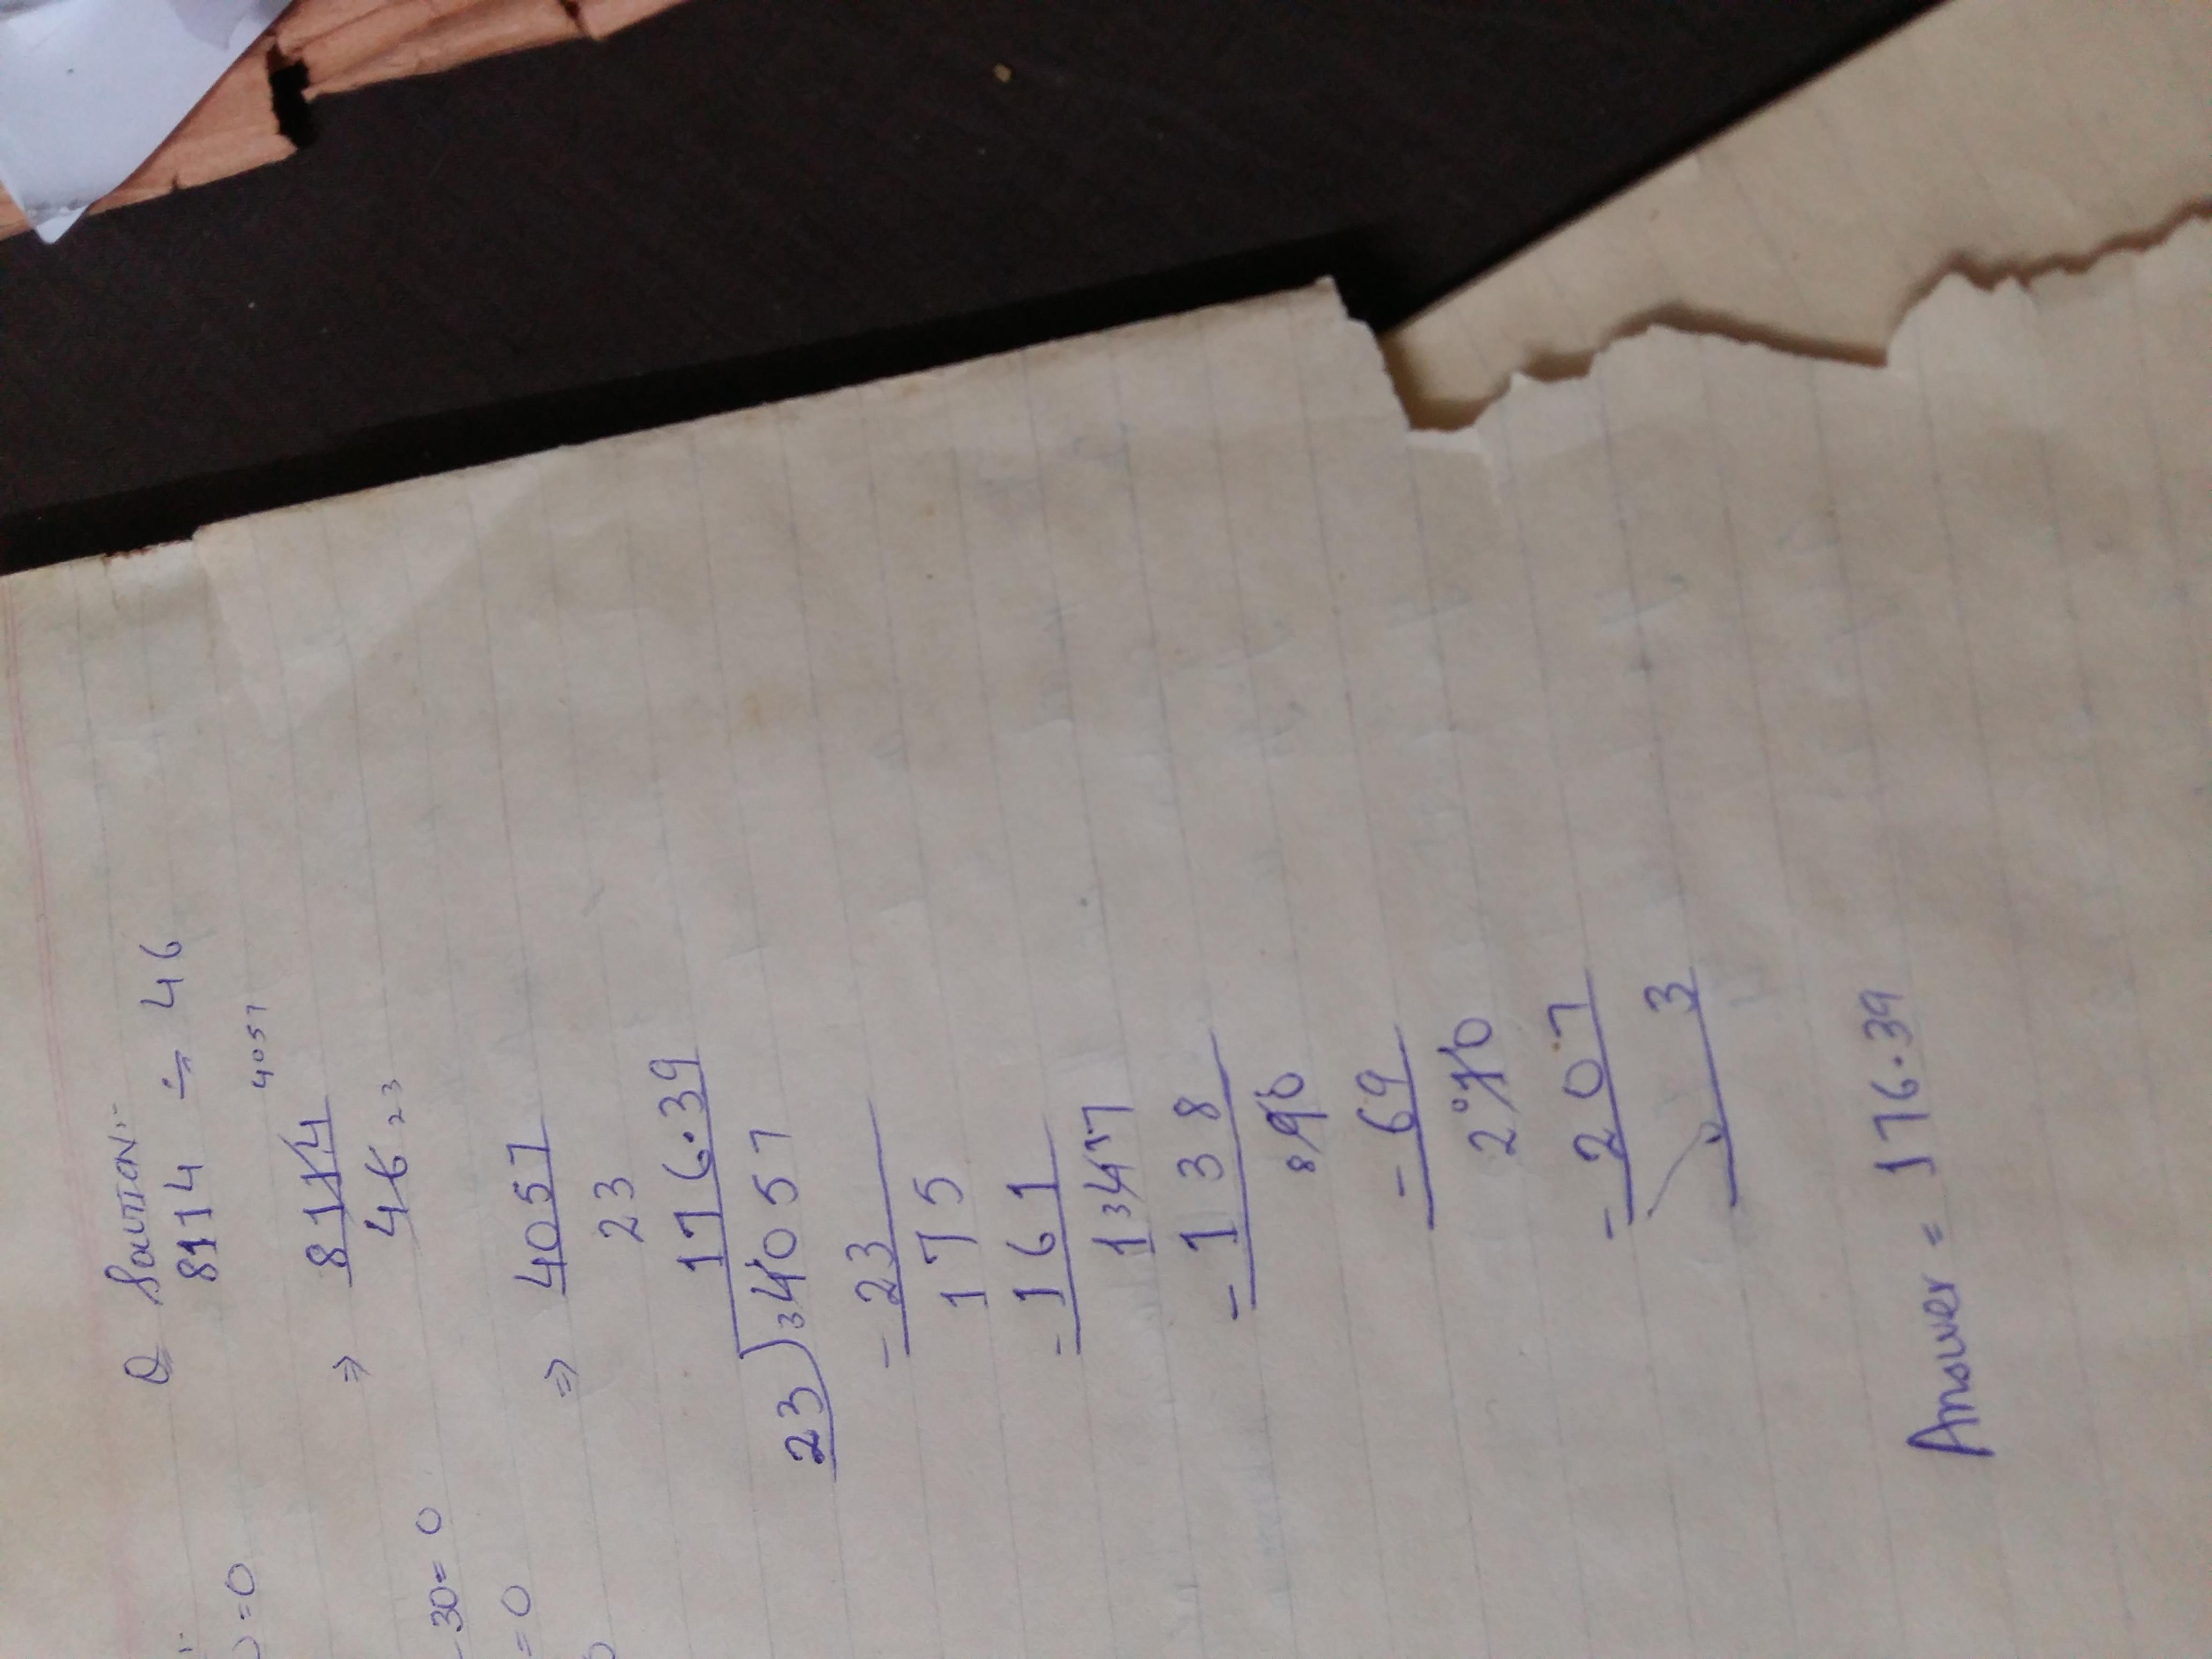 Q Solution:-
8114 ÷ 46
4057
⇒ 8114
46 23
⇒ 4057
23
176.39
23 ) 3 4057
- 23
175
- 161
1 3 4 17
- 138
8 90
- 69
2 0 10
- 207
3
Answer = 176.39
= 0
- 30 = 0
= 0